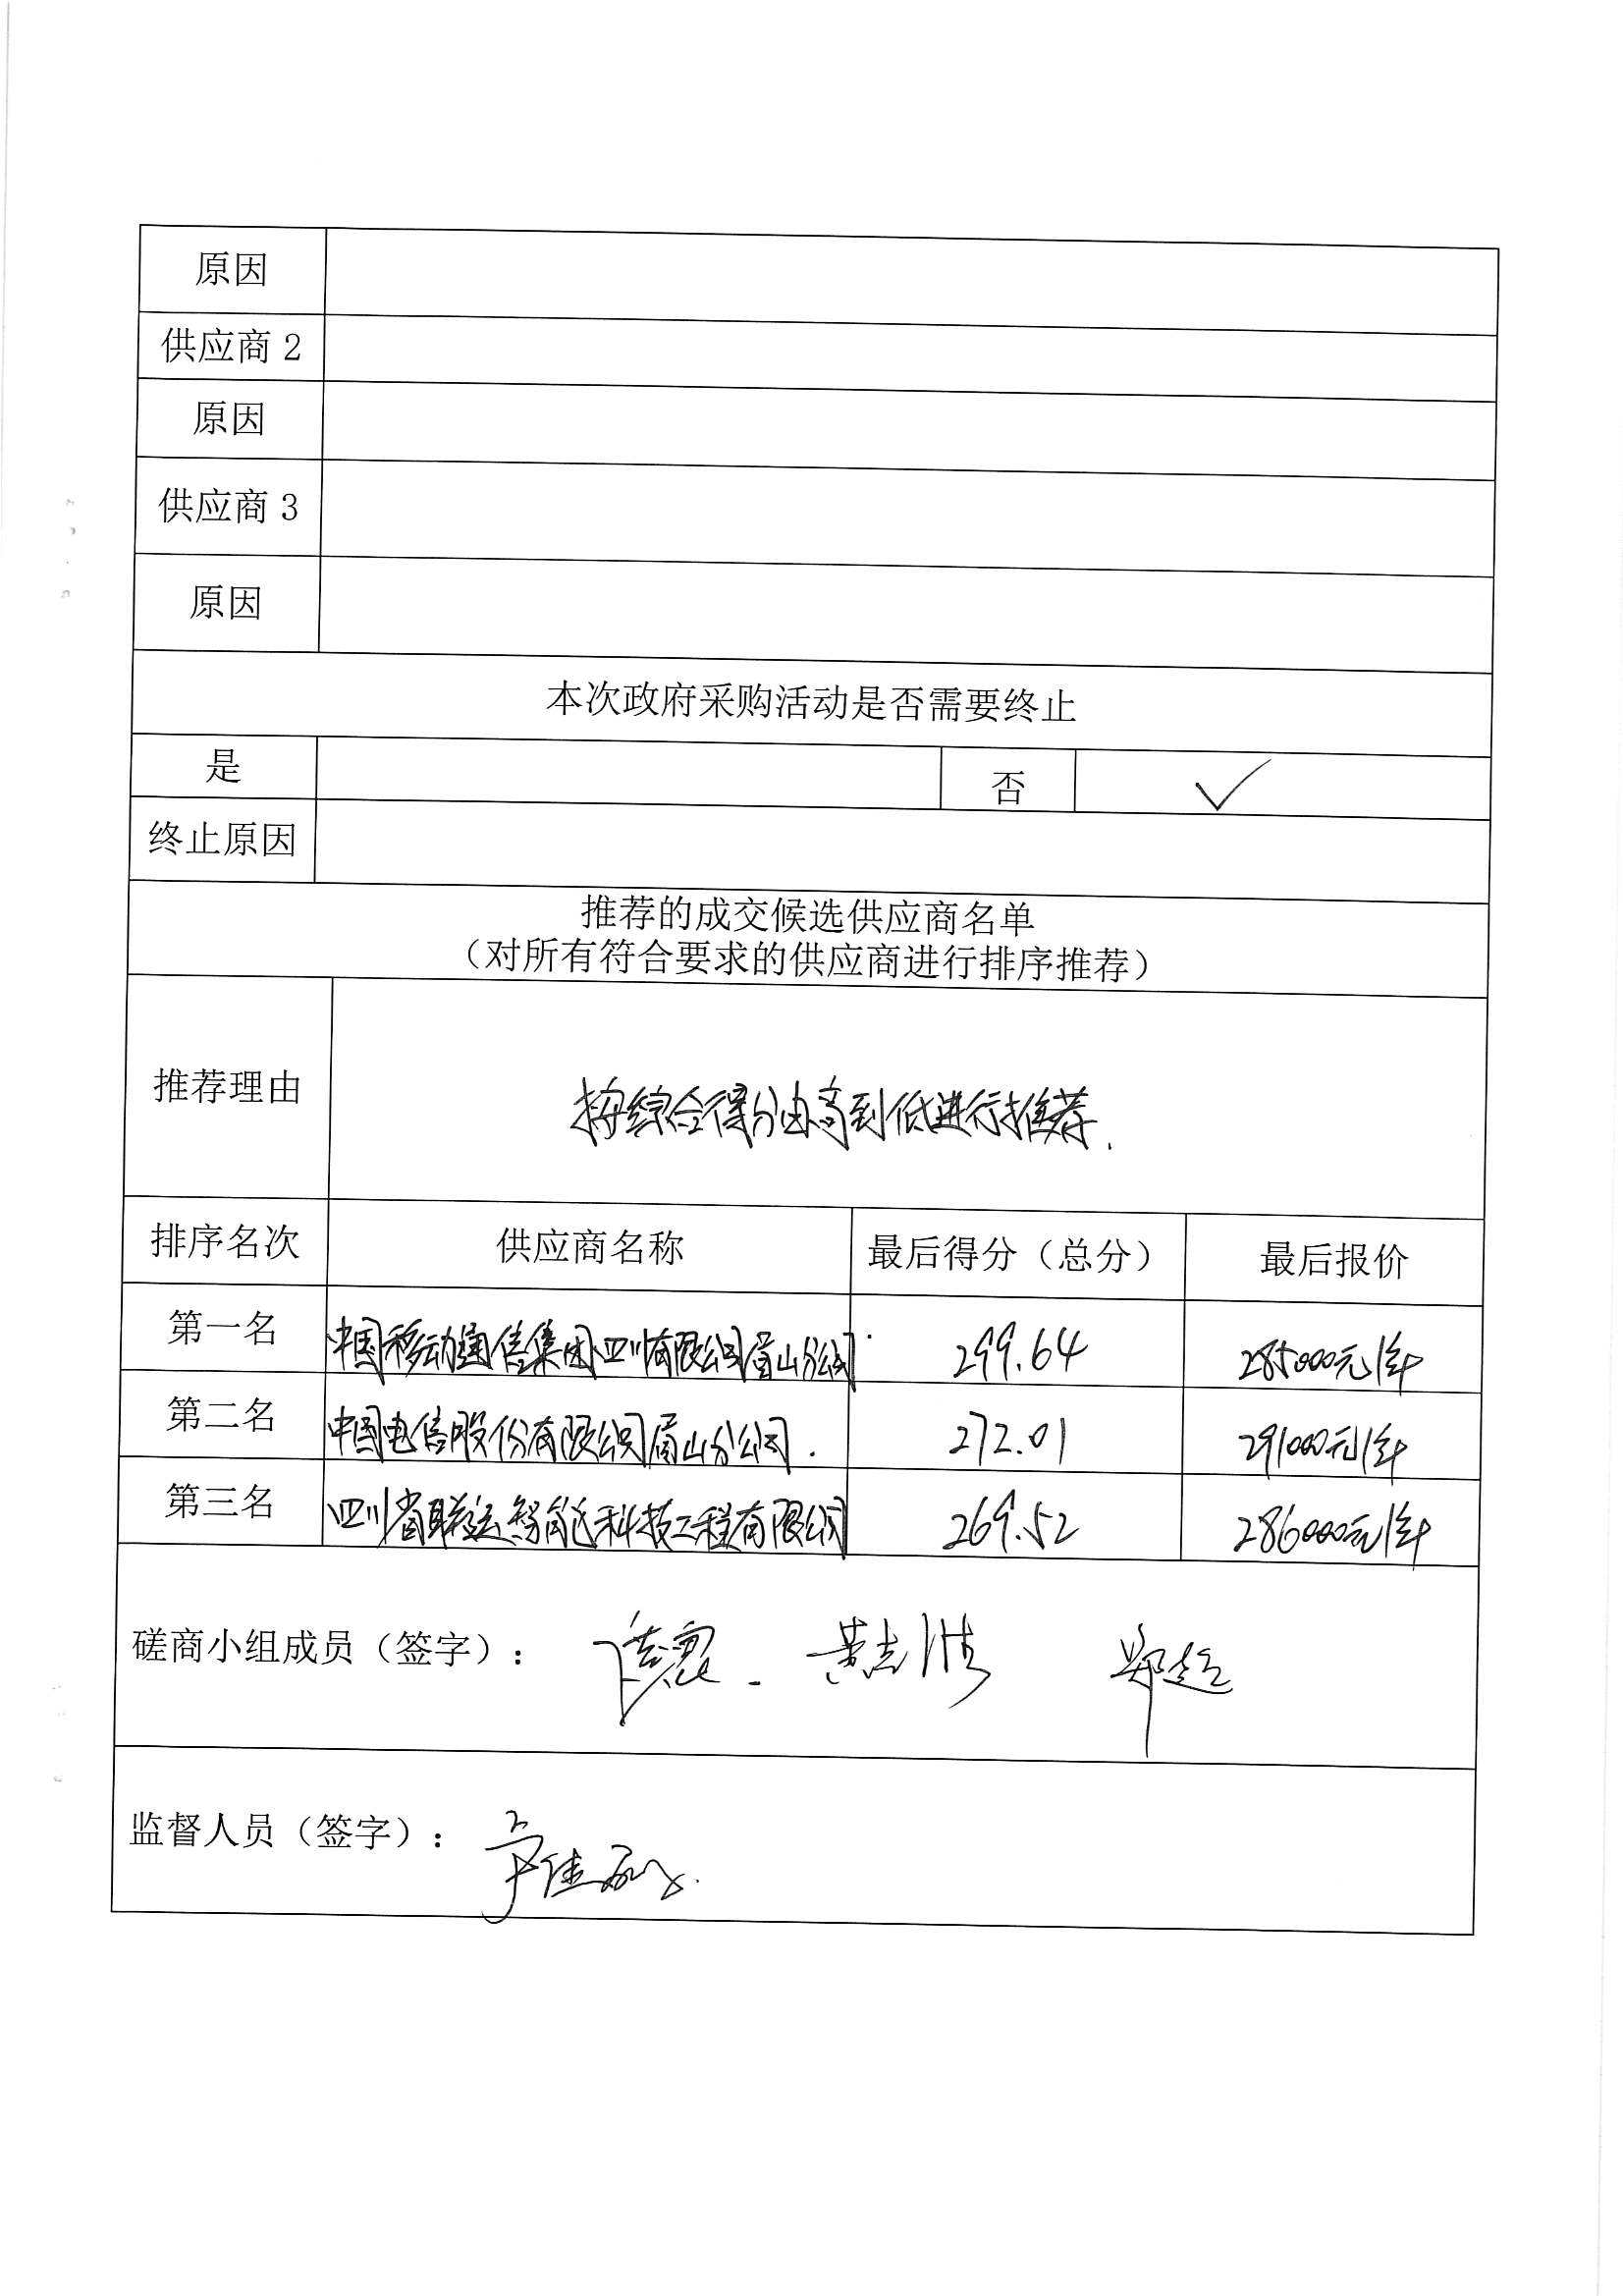 原因
供应商 2
原因
供应商 3
原因
本次政府采购活动是否需要终止
是 否 ✓
终止原因
推荐的成交候选供应商名单
（对所有符合要求的供应商进行排序推荐）
推荐理由 按综合得分由高到低进行推荐.
排序名次 供应商名称 最后得分（总分） 最后报价
第一名 中国移动通信集团四川有限公司眉山分公司 299.64 285000元/年
第二名 中国电信股份有限公司眉山分公司. 272.01 291000元/年
第三名 四川省联运智能科技工程有限公司 269.52 286000元/年
磋商小组成员（签字）： 黄志 郑超
监督人员（签字）：